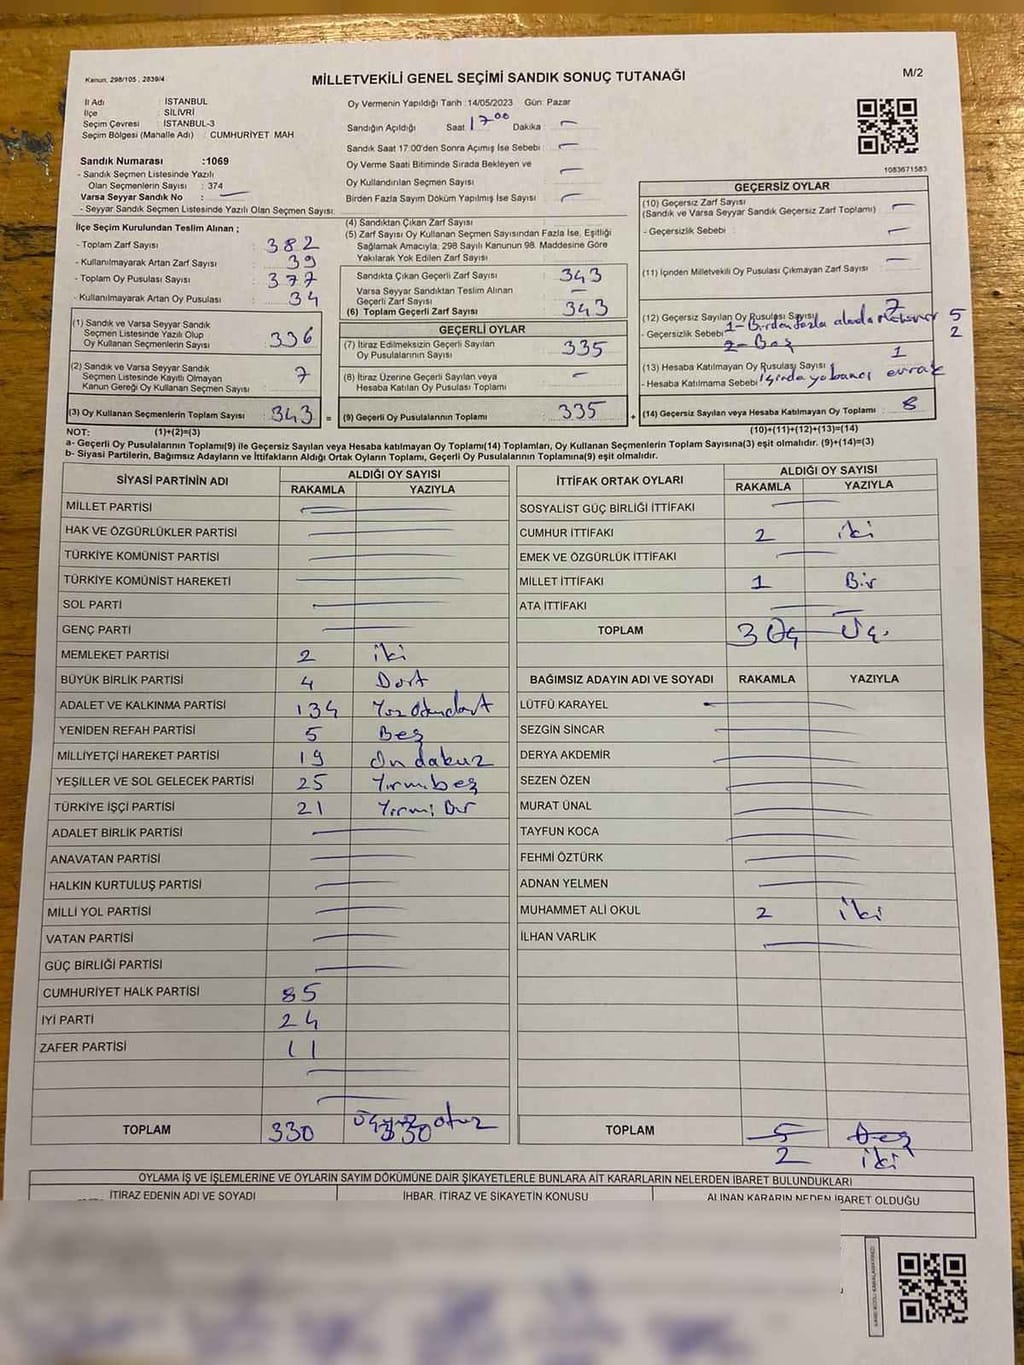 Kanun, 298/105 , 2839/4
MİLLETVEKİLİ GENEL SEÇİMİ SANDIK SONUÇ TUTANAĞI
M/2
İl Adı : İSTANBUL
İlçe : SİLİVRİ
Seçim Çevresi : İSTANBUL-3
Seçim Bölgesi (Mahalle Adı) : CUMHURİYET MAH
Sandık Numarası :1069
- Sandık Seçmen Listesinde Yazılı
Olan Seçmenlerin Sayısı : 374
Varsa Seyyar Sandık No : —
- Seyyar Sandık Seçmen Listesinde Yazılı Olan Seçmen Sayısı:
Oy Vermenin Yapıldığı Tarih :14/05/2023 Gün: Pazar
Sandığın Açıldığı Saat 17:00 Dakika : —
Sandık Saat 17:00'den Sonra Açımış İse Sebebi : —
Oy Verme Saati Bitiminde Sırada Bekleyen ve
Oy Kullandırılan Seçmen Sayısı : —
Birden Fazla Sayım Döküm Yapılmış İse Sayısı : —
1083671583
İlçe Seçim Kurulundan Teslim Alınan ;
- Toplam Zarf Sayısı : 382
- Kullanılmayarak Artan Zarf Sayısı : 39
- Toplam Oy Pusulası Sayısı : 377
- Kullanılmayarak Artan Oy Pusulası : 34
(1) Sandık ve Varsa Seyyar Sandık
Seçmen Listesinde Yazılı Olup
Oy Kullanan Seçmenlerin Sayısı : 336
(2) Sandık ve Varsa Seyyar Sandık
Seçmen Listesinde Kayıtlı Olmayan
Kanun Gereği Oy Kullanan Seçmen Sayısı : 7
(3) Oy Kullanan Seçmenlerin Toplam Sayısı : 343 =
(4) Sandıktan Çıkan Zarf Sayısı
(5) Zarf Sayısı Oy Kullanan Seçmen Sayısından Fazla İse, Eşitliği
Sağlamak Amacıyla, 298 Sayılı Kanunun 98. Maddesine Göre
Yakılarak Yok Edilen Zarf Sayısı
Sandıkta Çıkan Geçerli Zarf Sayısı : 343
Varsa Seyyar Sandıktan Teslim Alınan
Geçerli Zarf Sayısı : —
(6) Toplam Geçerli Zarf Sayısı : 343
GEÇERLİ OYLAR
(7) İtiraz Edilmeksizin Geçerli Sayılan
Oy Pusulalarının Sayısı : 335
(8) İtiraz Üzerine Geçerli Sayılan veya
Hesaba Katılan Oy Pusulası Toplamı : —
(9) Geçerli Oy Pusulalarının Toplamı : 335 +
GEÇERSİZ OYLAR
(10) Geçersiz Zarf Sayısı : —
(Sandık ve Varsa Seyyar Sandık Geçersiz Zarf Toplamı)
- Geçersizlik Sebebi : —
(11) İçinden Milletvekili Oy Pusulası Çıkmayan Zarf Sayısı : —
(12) Geçersiz Sayılan Oy Pusulası Sayısı : 7
- Geçersizlik Sebebi : 1- Birden fazla alada 5
2- Boş 2
(13) Hesaba Katılmayan Oy Pusulası Sayısı : 1
- Hesaba Katılmama Sebebi : içinde yabancı evrak
(14) Geçersiz Sayılan veya Hesaba Katılmayan Oy Toplamı : 8
NOT: (1)+(2)=(3)
(10)+(11)+(12)+(13)=(14)
a- Geçerli Oy Pusulalarının Toplamı(9) ile Geçersiz Sayılan veya Hesaba katılmayan Oy Toplamı(14) Toplamları, Oy Kullanan Seçmenlerin Toplam Sayısına(3) eşit olmalıdır. (9)+(14)=(3)
b- Siyasi Partilerin, Bağımsız Adayların ve İttifakların Aldığı Ortak Oyların Toplamı, Geçerli Oy Pusulalarının Toplamına(9) eşit olmalıdır.
SİYASİ PARTİNİN ADI
ALDIĞI OY SAYISI
RAKAMLA YAZIYLA
MİLLET PARTİSİ —
HAK VE ÖZGÜRLÜKLER PARTİSİ —
TÜRKİYE KOMÜNİST PARTİSİ —
TÜRKİYE KOMÜNİST HAREKETİ —
SOL PARTİ —
GENÇ PARTİ —
MEMLEKET PARTİSİ 2 iki
BÜYÜK BİRLİK PARTİSİ 4 Dört
ADALET VE KALKINMA PARTİSİ 134 Yüz Otuzdört
YENİDEN REFAH PARTİSİ 5 Beş
MİLLİYETÇİ HAREKET PARTİSİ 19 On dokuz
YEŞİLLER VE SOL GELECEK PARTİSİ 25 Yirmibeş
TÜRKİYE İŞÇİ PARTİSİ 21 Yirmi Bir
ADALET BİRLİK PARTİSİ —
ANAVATAN PARTİSİ —
HALKIN KURTULUŞ PARTİSİ —
MİLLİ YOL PARTİSİ —
VATAN PARTİSİ —
GÜÇ BİRLİĞİ PARTİSİ —
CUMHURİYET HALK PARTİSİ 85
İYİ PARTİ 24
ZAFER PARTİSİ 11
TOPLAM 330 üçyüz otuz 330
İTTİFAK ORTAK OYLARI
ALDIĞI OY SAYISI
RAKAMLA YAZIYLA
SOSYALİST GÜÇ BİRLİĞİ İTTİFAKI —
CUMHUR İTTİFAKI 2 iki
EMEK VE ÖZGÜRLÜK İTTİFAKI —
MİLLET İTTİFAKI 1 Bir
ATA İTTİFAKI —
TOPLAM 3 Üç Üç.
BAĞIMSIZ ADAYIN ADI VE SOYADI RAKAMLA YAZIYLA
LÜTFÜ KARAYEL —
SEZGİN SİNCAR —
DERYA AKDEMİR —
SEZEN ÖZEN —
MURAT ÜNAL —
TAYFUN KOCA —
FEHMİ ÖZTÜRK —
ADNAN YELMEN —
MUHAMMET ALİ OKUL 2 iki
İLHAN VARLIK —
TOPLAM 5 Beş
2 iki
OYLAMA İŞ VE İŞLEMLERİNE VE OYLARIN SAYIM DÖKÜMÜNE DAİR ŞİKAYETLERLE BUNLARA AİT KARARLARIN NELERDEN İBARET BULUNDUKLARI
İTİRAZ EDENİN ADI VE SOYADI
İHBAR, İTİRAZ VE ŞİKAYETİN KONUSU
ALINAN KARARIN NEDEN İBARET OLDUĞU